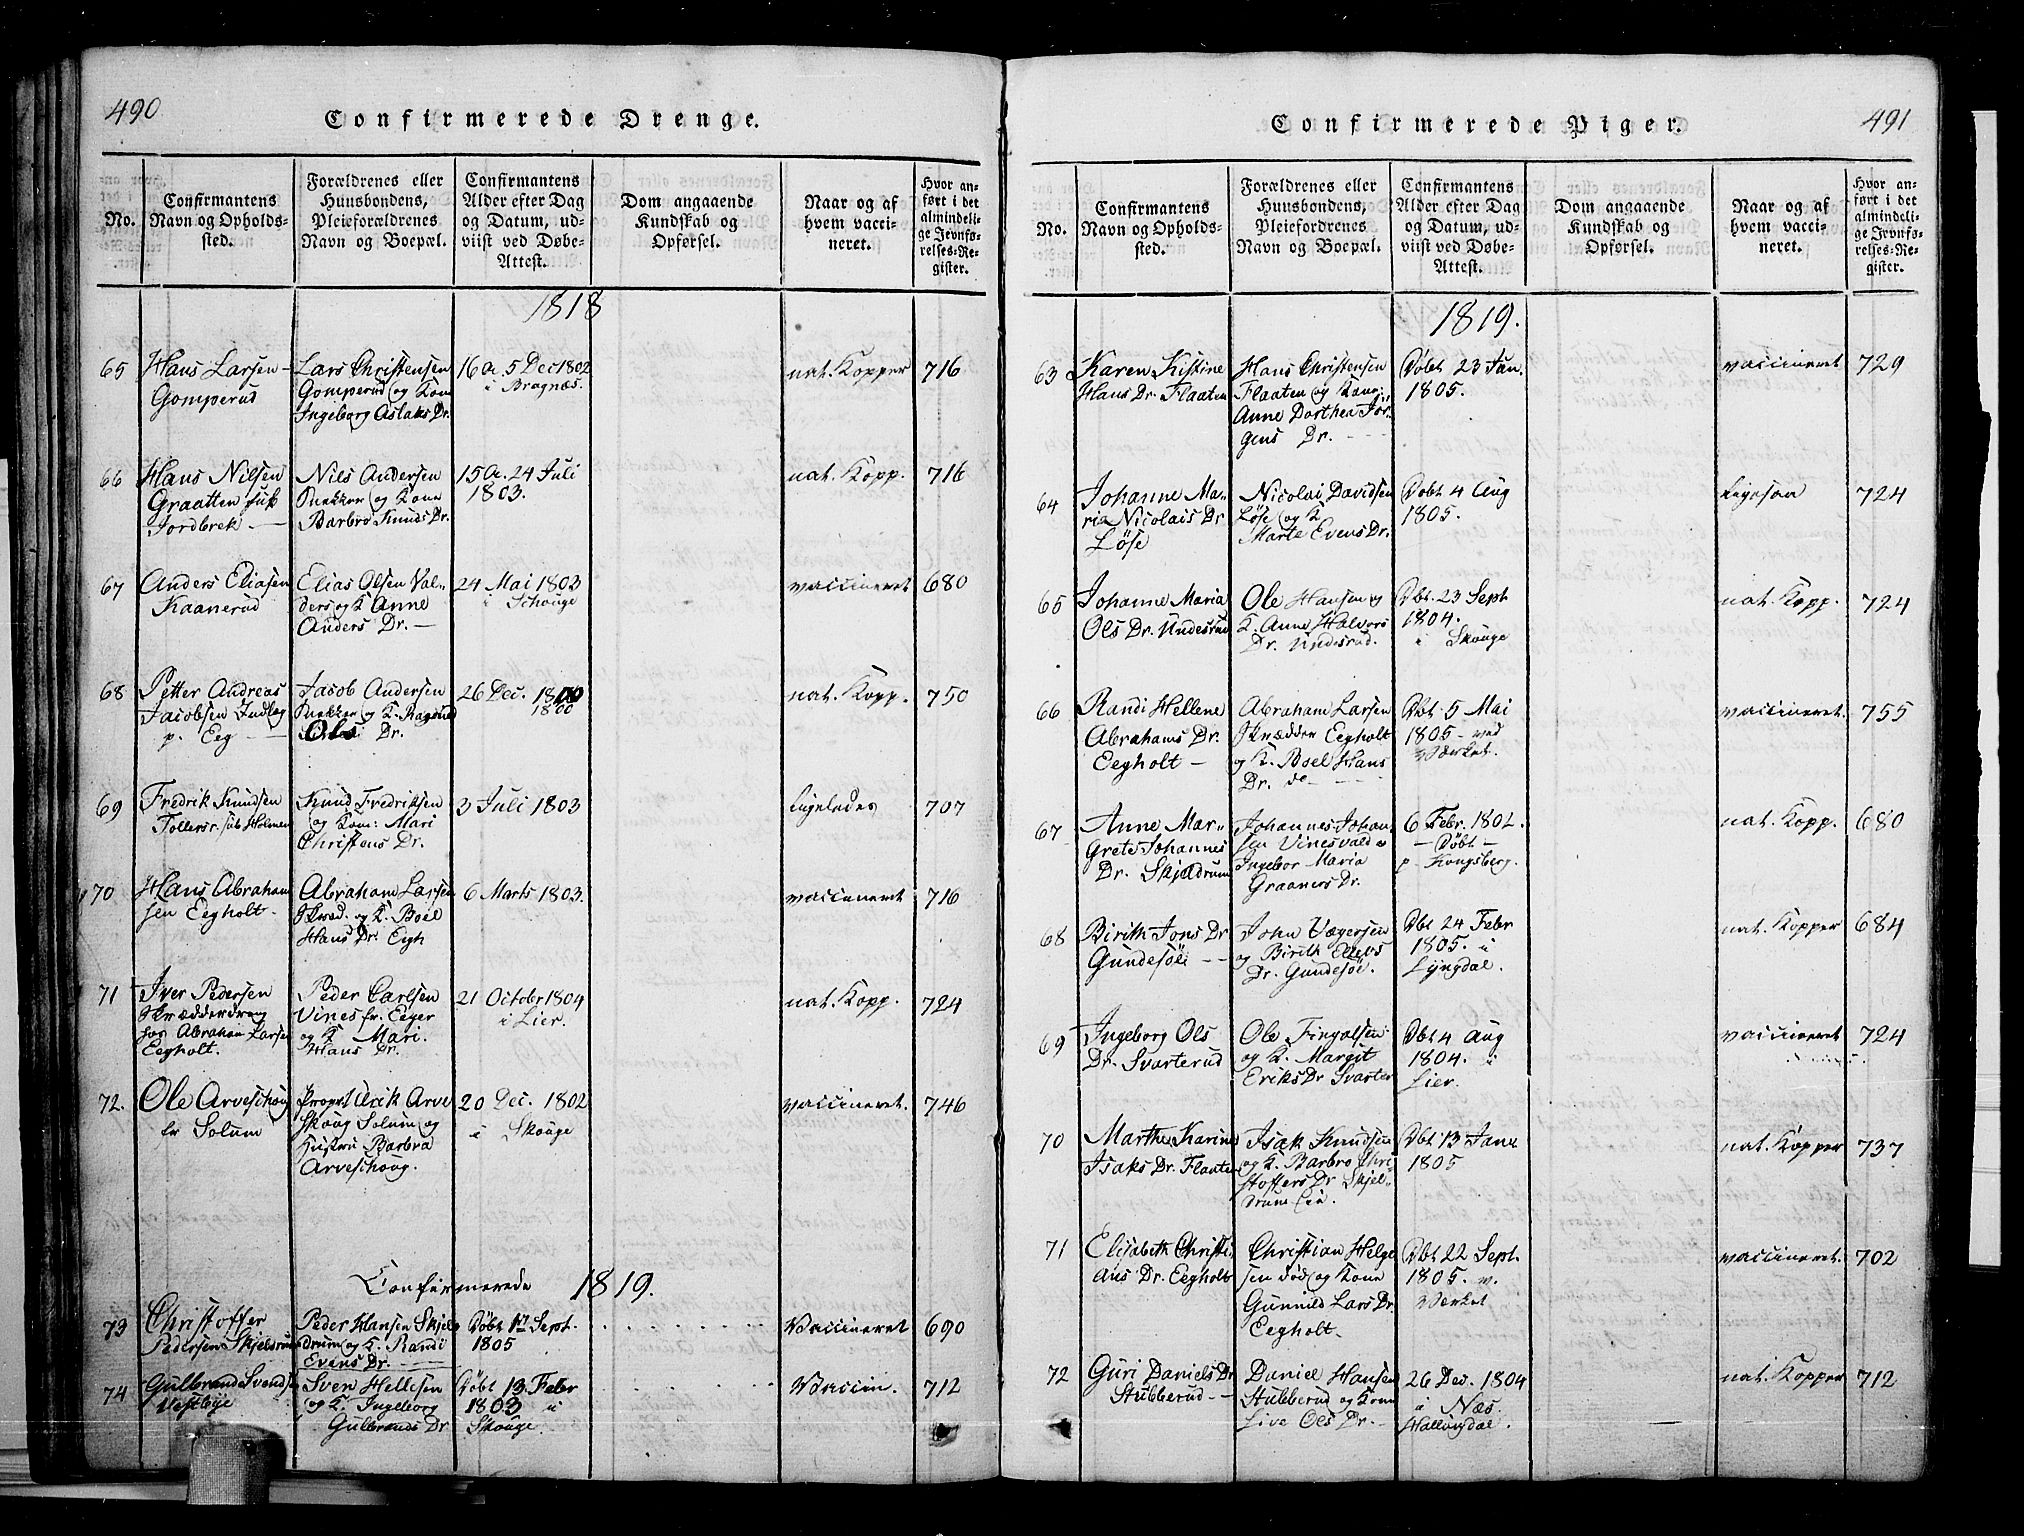 490
Confirmerede Drenge.
No.
Confirmantens
Navn og Opholds-
sted.
Forældrenes eller
Huusbondens,
Pleieforældrenes
Navn og Boepæl.
Confirmantens
Alder efter Dag
og Datum, ud-
viist ved Døbe-
Attest.
Dom angaaende
Kundskab og
Opførsel.
Naar og af
hvem vacci-
neret.
Hvor an-
ført i det
almindeli-
ge Jevnfø-
relses-Re-
gister.
1818
65
Hans Larsen
Gomperud
Lars Christensen
Gomperud og Kone
Ingeborg Aslaks Dr.
16 a. 5 Dec 1802
i Bragnæs.
nat. Kopper
716
66
Hans Nilsen
Graatten
Jordbrek
Nils Andersen
og Kone
Barbro Knuds Dr.
15 a. 24 Juli
1803.
nat. Kopp.
716
67
Anders Eliasen
Kaanerud
Elias Olsen Val-
ders og K Anne
Anders Dr.
24 Mai 1803
i Schouge
vaccineret
680
68
Petter Andreas
Jacobsen
p. Eeg
Jacob Andersen
og K.
Ols Dr.
26 Dec.
1800
nat. Kopp.
750
69
Fredrik Knudsen
Tollersr. Holmen
Knud Fredriksen
og Kone: Mari
Christens Dr.
3 Juli 1803
Ligeledes
707
70
Hans Abraham
sen Eegholt.
Abraham Larsen
Skræd. og K. Boel
Hans Dr. Eegh
6 Marts 1803.
vaccineret
716
71
Iver Pedersen
Skrædderdreng
hos Abraham Larsen
Eegholt.
Peder Carlsen
Vines fr. Eeger
og K Mari
Hans Dr.
21 October 1804
i Lier.
nat. Kopp.
724
72.
Ole Arveschoug
fr Solum
Propr. Ulrik Arve
skoug Solum og
Hustru Barbra
Arveschoug.
20 Dec. 1802
i Skouge
vaccineret.
746
Confirmerede 1819.
73
Christoffer
Pedersen Skjeldrum
Peder Hansen Skjel
drum og K. Randi
Evens Dr.
Døbt 1st Sept.
1805
Vaccineret
690
74
Gulbrand Svendsen
Vestbye
Sven Hellesen
og K. Ingeborg
Gulbrands Dr
Døbt 13 Febr
1803 i
Skouge.
Vaccin.
712
491
Confirmerede Piger.
No.
Confirmantens
Navn og Opholds-
sted.
Forældrenes eller
Huusbondens,
Pleiefordrenes
Navn og Boepæl.
Confirmantens
Alder efter Dag
og Datum, ud-
viist ved Døbe-
Attest.
Dom angaaende
Kundskab og
Opførsel.
Naar og af
hvem vacci-
neret.
Hvor an-
ført i det
almindeli-
ge Jevnfø-
relses-Re-
gister.
1819.
63
Karen Kistine
Hans Dr. Flaaten
Hans Christensen
Flaaten og Kone:
Anne Dorthea Jør-
gens Dr.
Døbt 23 Jan.
1805.
vaccineret
729
64
Johanne Ma-
ria Nicolais Dr
Løse
Nicolai Davidsen
Løse og K
Marte Evens Dr.
Døbt 4 Aug
1805.
Ligesaa
724
65
Johanne Maria
Ols Dr. Undesrud
Ole Hansen og
K. Anne Halvors
Dr. Undesrud.
Dbt. 23 Sept
1804.
i Skouge
nat. Kopp.
724
66
Randi Hellene
Abrahams Dr.
Eegholt
Abraham Larsen
Skrædder Eegholt
og K. Boel Hans
Dr. do
Dbt 5 Mai
1805 - ved
Værket.
vaccineret.
755
67
Anne Mar-
grete Johannes
Dr. Skjeldrum
Johannes Johan
sen Vinesvald og
Ingebor Maria
Graaners Dr.
6 Febr. 1802.
- Døbt -
p. Kongsberg.
nat. Kopp.
680
68
Birith Jons Dr
Gundesøe
John Vegersen
og Birith Ellevs
Dr. Gundesøe.
Dbt 24 Febr
1805. i
Lyngdal.
nat. Kopper
684
69
Ingeborg Ols
Dr. Svarterud
Ole Fingalsen
og K. Margit
Eriks Dr Svarter
Dbt 4 Aug
1804. i
Lier.
vaccineret
724
70
Marthe Karine
Isaks Dr. Flaaten
Isak Knudsen
og K. Barbro Chri
stoffers Dr Skjel-
drum Eie.
Dbt 13 Janr
1805
nat. Kopper
737
71
Elisabeth Christi
ans Dr. Eegholt
Christian Helge
sen død og Kone
Gunnild Lars Dr.
Eegholt.
Dbt 22 Sept.
1805. v.
Værket
vaccineret.
702
72
Guri Daniels Dr
Stubberud
Daniel Hansen
Stubberud og Kone
Live Ols Dr.
26 Dec. 1804
i Næs.
Hallingdal.
nat. Kopper
712